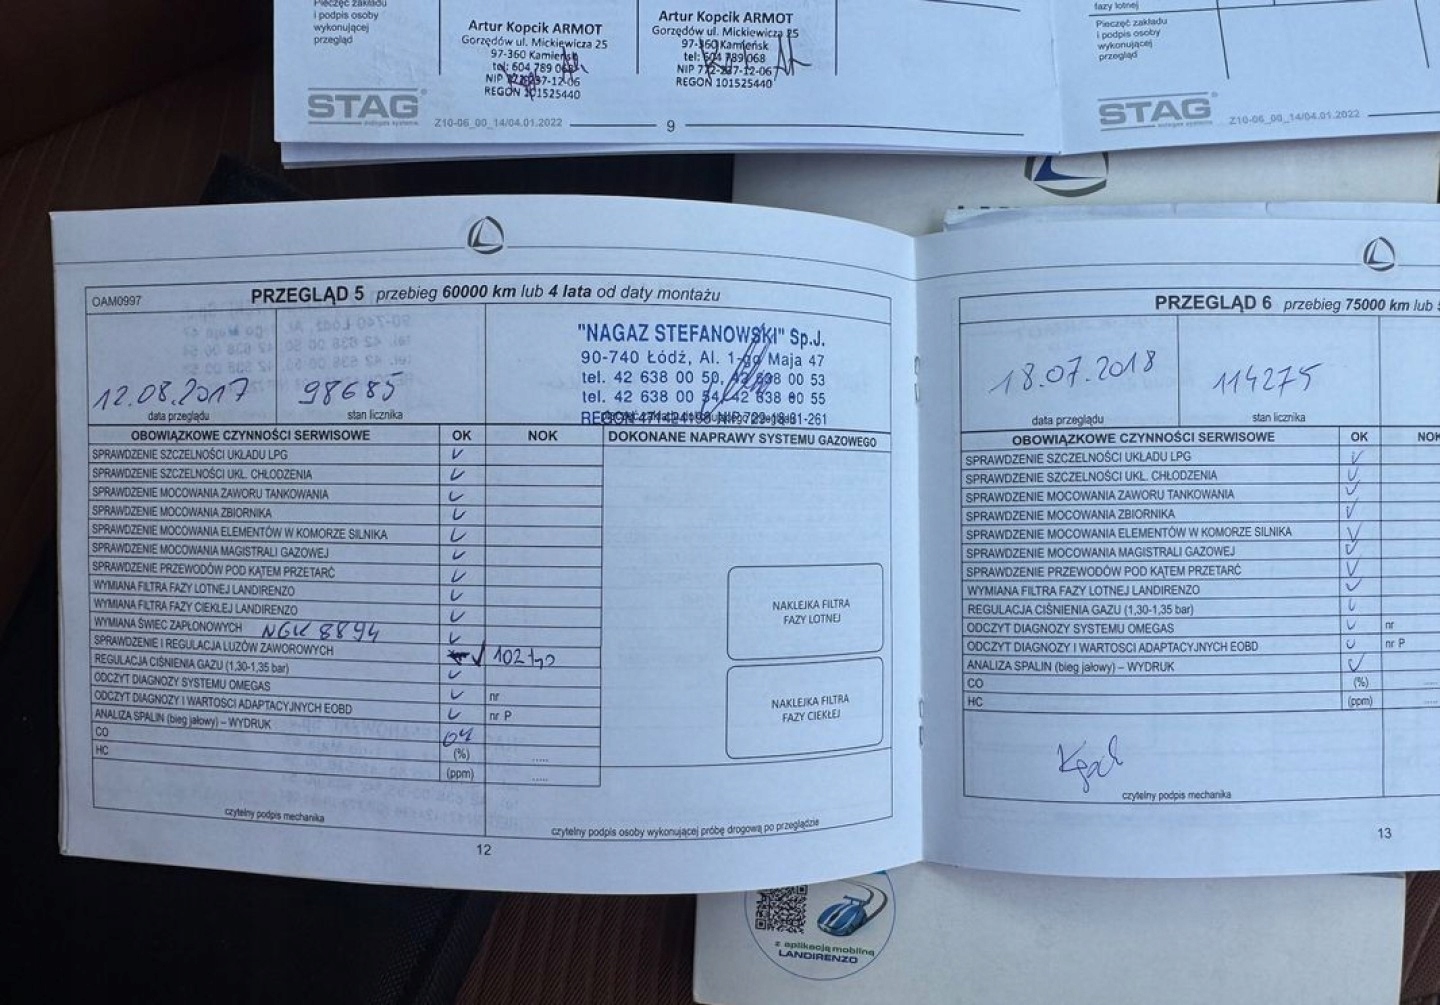 Pieczęć zakładu
i podpis osoby
wykonującej
przegląd
Artur Kopcik ARMOT
Gorzędów ul. Mickiewicza 25
97-360 Kamieńsk
tel: 604 789 068
NIP 772-237-12-06
REGON 101525440
Artur Kopcik ARMOT
Gorzędów ul. Mickiewicza 25
97-360 Kamieńsk
tel: 604 789 068
NIP 772-237-12-06
REGON 101525440
STAG
Z10-06_00_14/04.01.2022
9
fazy lotnej
Pieczęć zakładu
i podpis osoby
wykonującej
przegląd
STAG
Z10-06_00_14/04.01.2022
OAM0997
PRZEGLĄD 5 przebieg 60000 km lub 4 lata od daty montażu
12.08.2017
data przeglądu
98685
stan licznika
"NAGAZ STEFANOWSKI" Sp.J.
90-740 Łódź, Al. 1-go Maja 47
tel. 42 638 00 50, 42 638 00 53
tel. 42 638 00 54, 42 638 00 55
OBOWIĄZKOWE CZYNNOŚCI SERWISOWE OK NOK DOKONANE NAPRAWY SYSTEMU GAZOWEGO
SPRAWDZENIE SZCZELNOŚCI UKŁADU LPG
SPRAWDZENIE SZCZELNOŚCI UKŁ. CHŁODZENIA
SPRAWDZENIE MOCOWANIA ZAWORU TANKOWANIA
SPRAWDZENIE MOCOWANIA ZBIORNIKA
SPRAWDZENIE MOCOWANIA ELEMENTÓW W KOMORZE SILNIKA
SPRAWDZENIE MOCOWANIA MAGISTRALI GAZOWEJ
SPRAWDZENIE PRZEWODÓW POD KĄTEM PRZETARĆ
WYMIANA FILTRA FAZY LOTNEJ LANDIRENZO
WYMIANA FILTRA FAZY CIEKŁEJ LANDIRENZO
WYMIANA ŚWIEC ZAPŁONOWYCH NGK 8894
SPRAWDZENIE I REGULACJA LUZÓW ZAWOROWYCH 102
REGULACJA CIŚNIENIA GAZU (1,30-1,35 bar)
ODCZYT DIAGNOZY SYSTEMU OMEGAS nr
ODCZYT DIAGNOZY I WARTOŚCI ADAPTACYJNYCH EOBD nr P
ANALIZA SPALIN (bieg jałowy) – WYDRUK
CO (%) .....
HC (ppm) .....
NAKLEJKA FILTRA
FAZY LOTNEJ
NAKLEJKA FILTRA
FAZY CIEKŁEJ
czytelny podpis mechanika
czytelny podpis osoby wykonującej próbę drogową po przeglądzie
12
PRZEGLĄD 6 przebieg 75000 km lub
18.07.2018
data przeglądu
114275
stan licznika
OBOWIĄZKOWE CZYNNOŚCI SERWISOWE OK NOK
SPRAWDZENIE SZCZELNOŚCI UKŁADU LPG
SPRAWDZENIE SZCZELNOŚCI UKŁ. CHŁODZENIA
SPRAWDZENIE MOCOWANIA ZAWORU TANKOWANIA
SPRAWDZENIE MOCOWANIA ZBIORNIKA
SPRAWDZENIE MOCOWANIA ELEMENTÓW W KOMORZE SILNIKA
SPRAWDZENIE MOCOWANIA MAGISTRALI GAZOWEJ
SPRAWDZENIE PRZEWODÓW POD KĄTEM PRZETARĆ
WYMIANA FILTRA FAZY LOTNEJ LANDIRENZO
REGULACJA CIŚNIENIA GAZU (1,30-1,35 bar)
ODCZYT DIAGNOZY SYSTEMU OMEGAS nr
ODCZYT DIAGNOZY I WARTOŚCI ADAPTACYJNYCH EOBD nr P
ANALIZA SPALIN (bieg jałowy) – WYDRUK
CO (%) .....
HC (ppm) .....
czytelny podpis mechanika
13
z aplikacją mobilną
LANDIRENZO